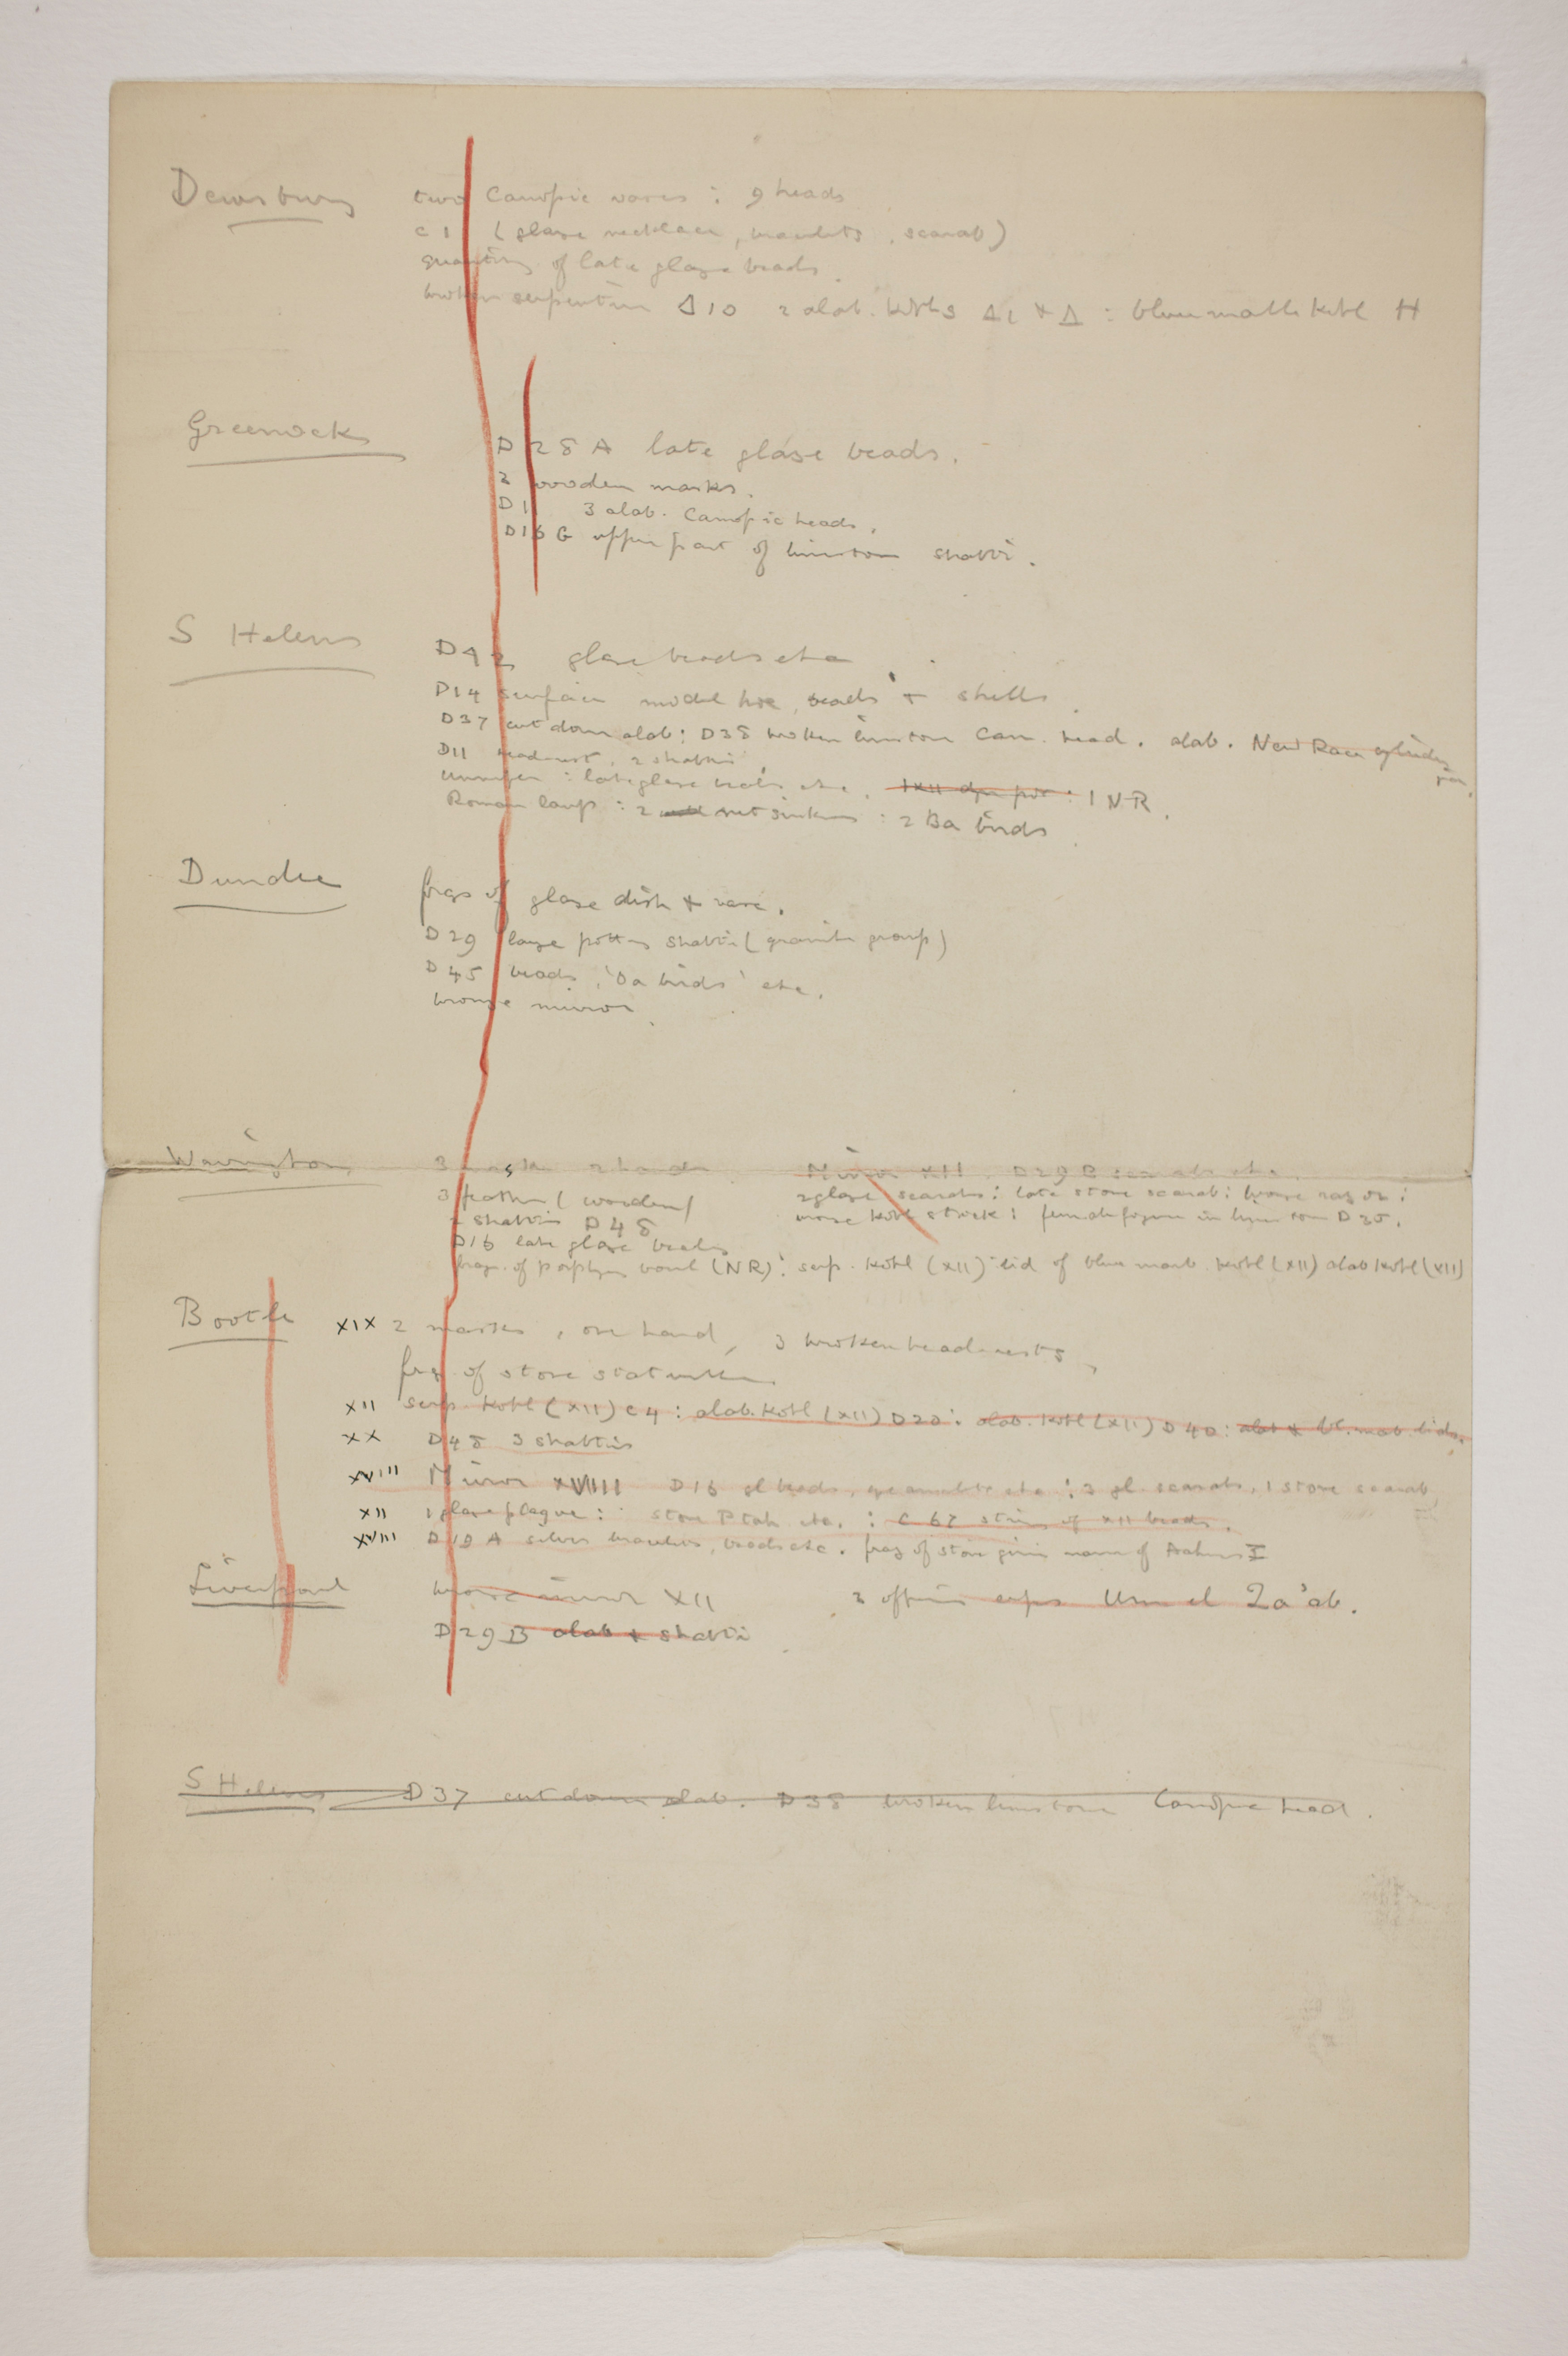 Dewsbury two Canopic vases : 9 heads
C 1 (glaze necklace, bracelets, scarab)
quantity of late glaze beads.
broken serpentine Δ10 2 alab. kohls Δ1 + Δ : blue marble kohl H
Greenock
D 28 A late glaze beads.
2 wooden masks.
D 1 3 alab. Canopic heads.
D16 G upper part of limestone shabti.
S Helens
D92 glaze beads etc
D14 surface model hoe, beads + shells.
D37 cut down alab: D38 broken limestone Can. head. alab. New Race cylinder jar.
D11 headrest, 2 shabtis,
late glaze beads etc. 1 XII dyn pot : 1 NR.
Roman lamp : 2 net sinkers : 2 Ba birds
Dundee frags of glaze dish + vase.
D 29 large pottery shabti (granite group)
D 45 beads, 'ba birds' etc.
bronze mirror.
Warrington 3 masks 2 hands Mirror XII. D29 B scarabs etc.
3 feathers (wooden) 2 glaze scarabs : late stone scarab : bronze razor :
2 shabtis D48 bronze kohl stick : female figure in limestone D 25.
D16 late glaze beads
frag. of porphyry bowl (NR) : serp. kohl (XII) lid of blue marb. kohl (XII) alab kohl (XII)
Bootle XIX 2 masks, one hand, 3 broken headrests,
frag of stone statuette
XII serp. kohl (XII) C4 : alab. kohl (XII) D20 : alab. kohl (XII) D 40 : alab + bl. mab. lids.
XX D48 3 shabtis
XVIII Mirror XVIII D16 gl beads, eye amulets etc : 3 gl. scarabs, 1 stone scarab,
XII 1 glaze plaque : stone Ptah etc. : C 67 string of XII beads.
XVIII D 19 A silver bracelets, beads etc. frag of stone giving name of Aahmes I
Liverpool bronze mirror XII 2 offering cups Umm el Qa'ab.
D29 B alab + shabti
S Helens D37 cut down alab. D38 broken limestone Canopic head.